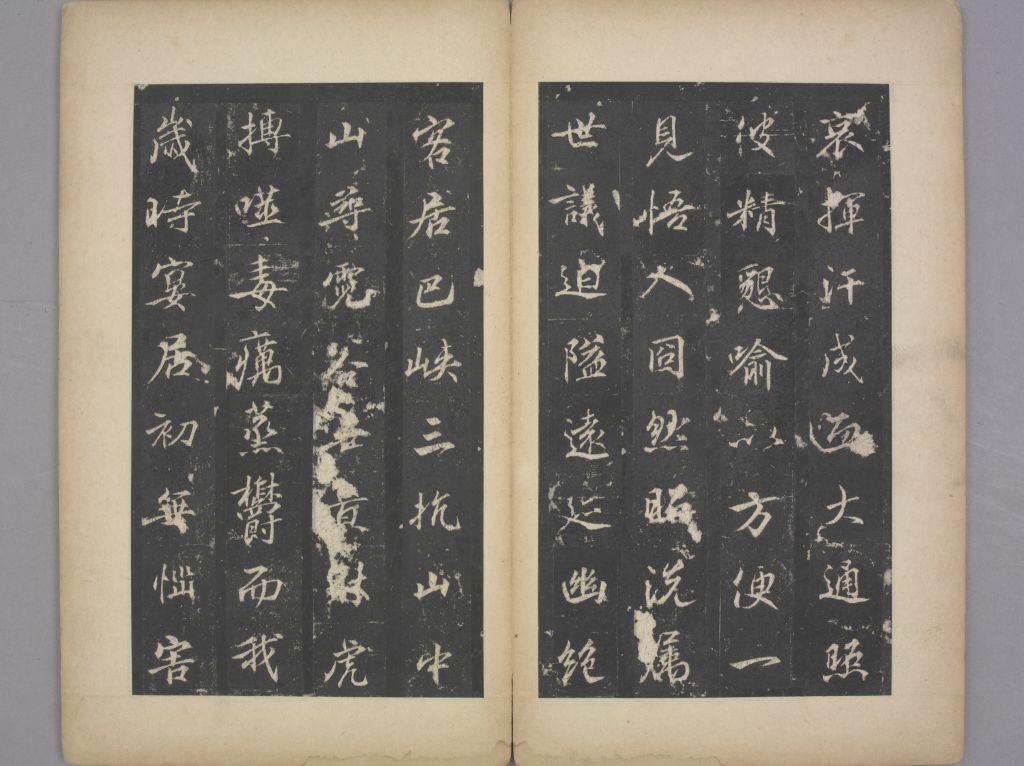 哀揮汗成血大通照
彼精懇喻以方便一
見悟入囧然昭洗屬
世議迫隘遠迹幽絕
客居巴峽三抗山中
山尋霓谷虎
搏噬毒癘蒸欝而我
歲時宴居初無惱害